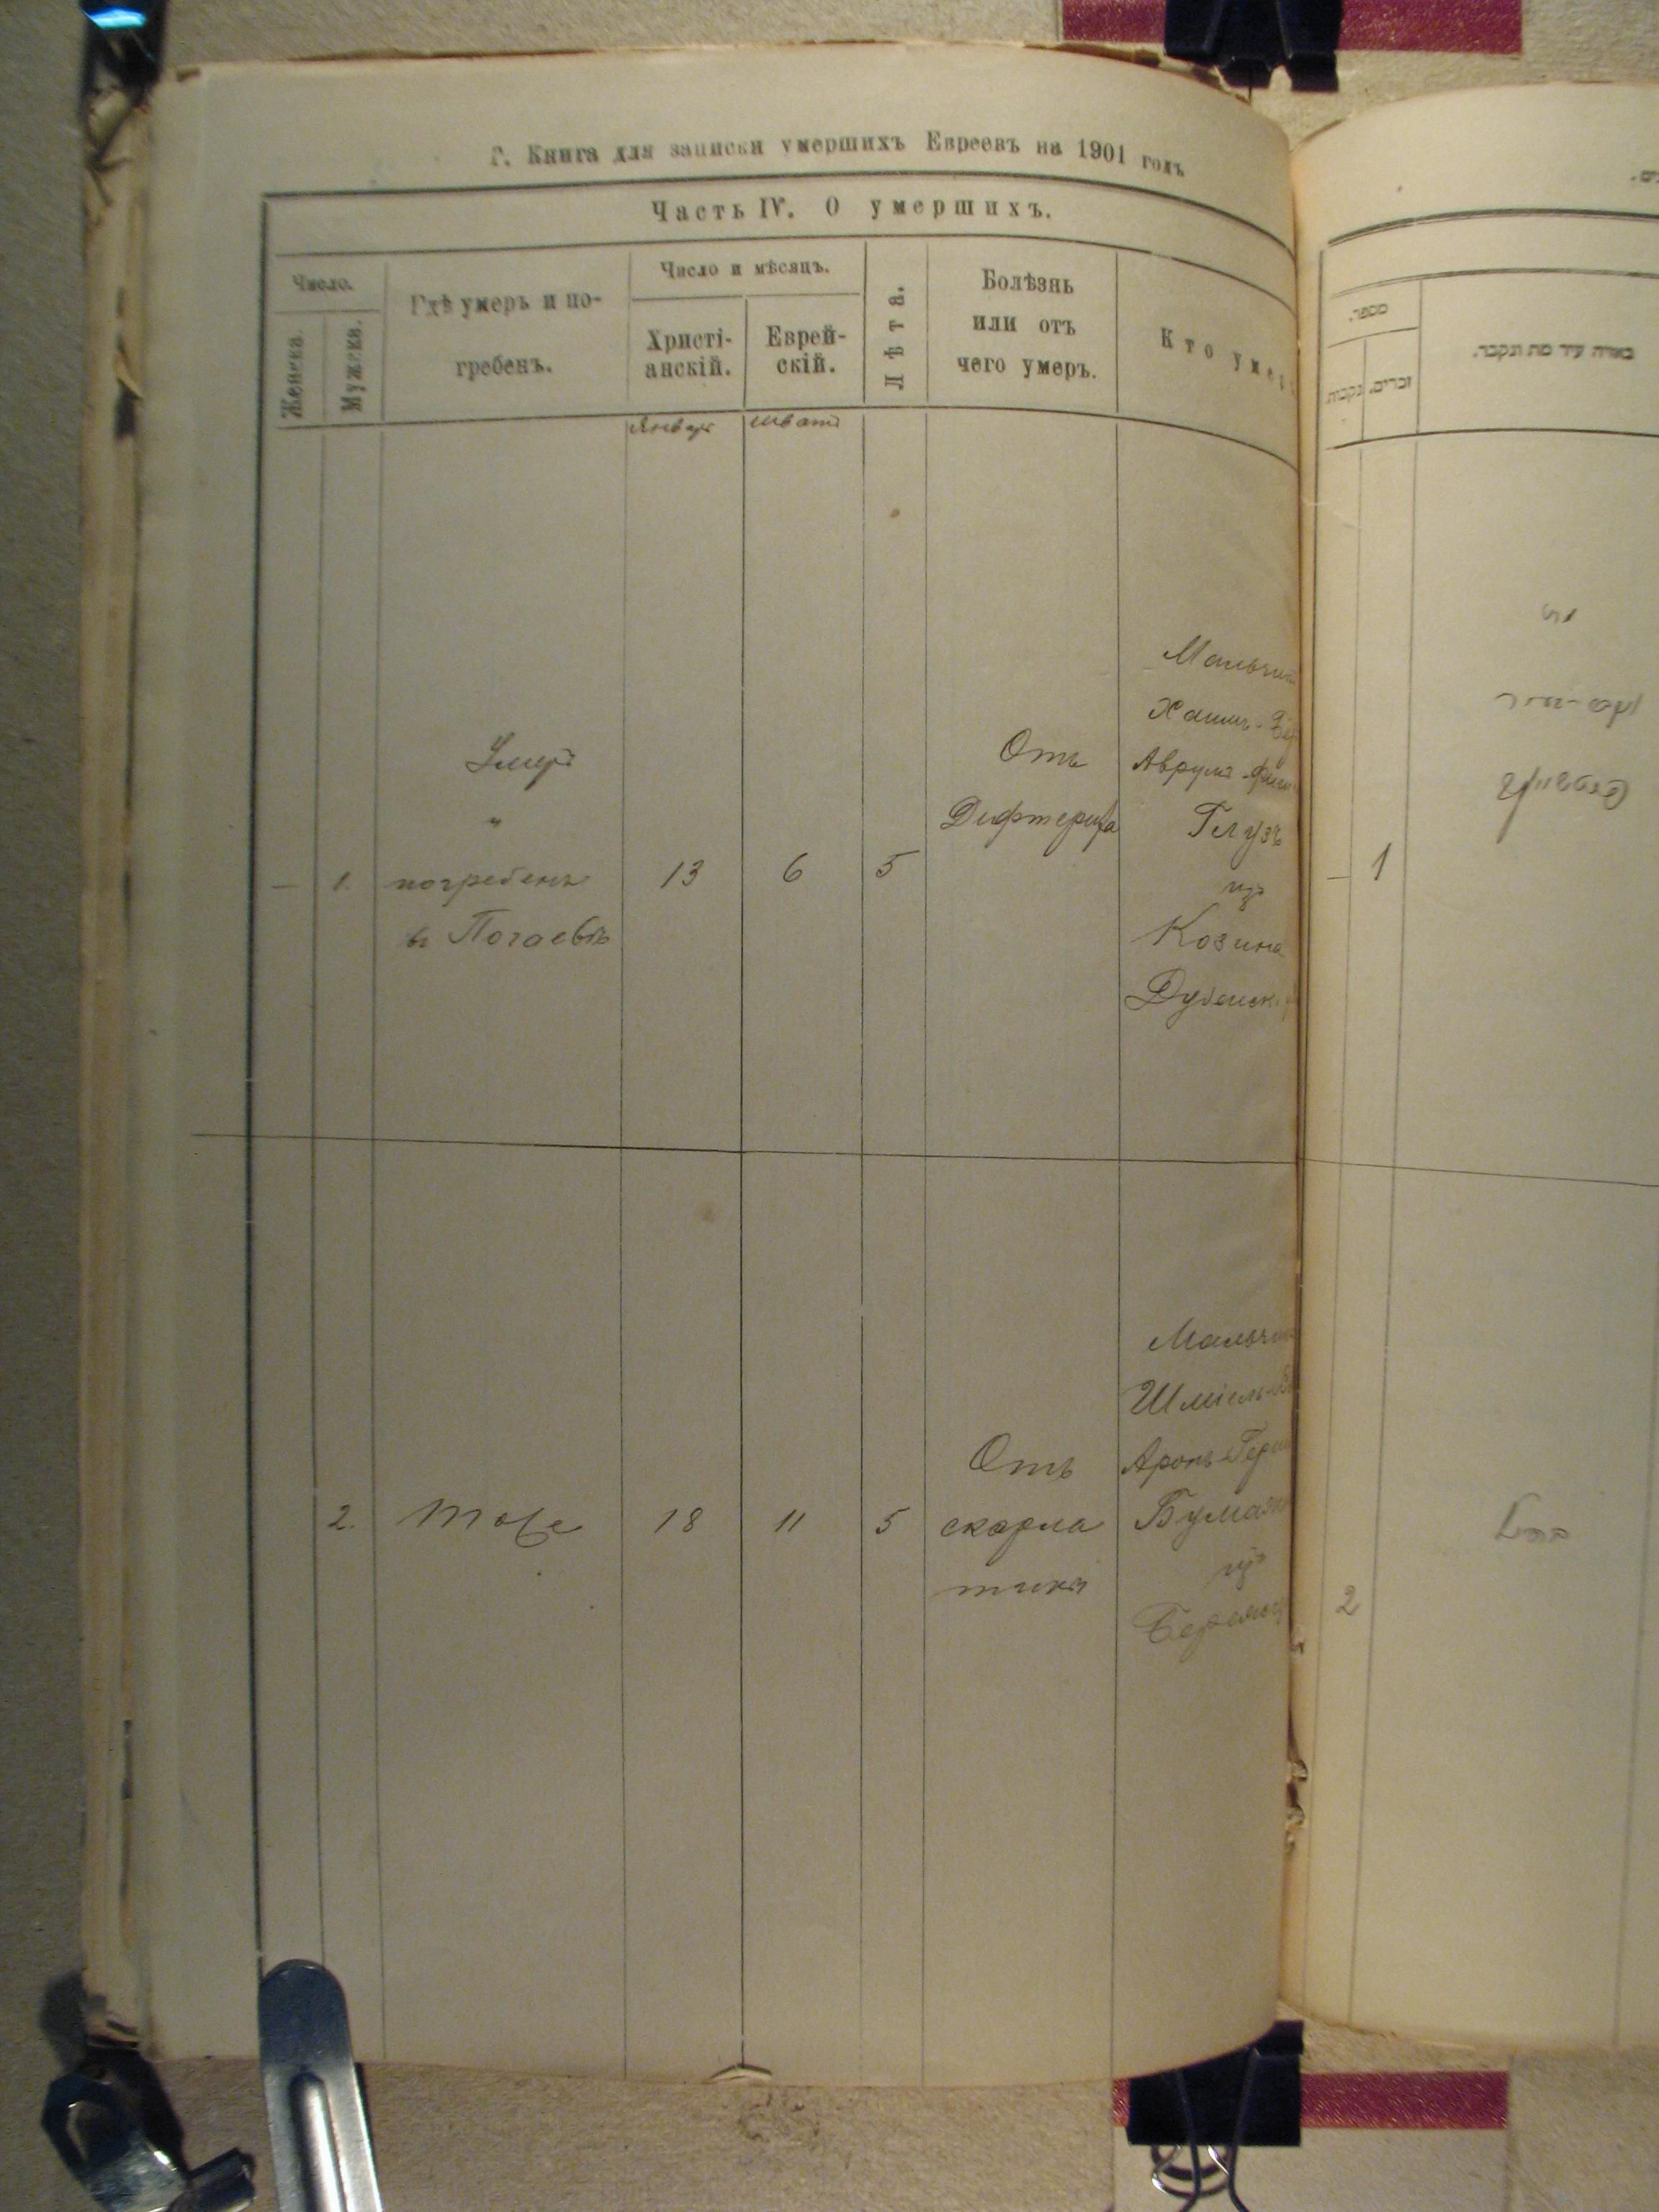 Г. Книга для записки умершихъ Евреевъ на 1901 годъ
Часть IV. О умершихъ.
Число.
Женска.
Мужска.
Гдѣ умеръ и по-
гребенъ.
Число и мѣсяцъ.
Христі-
анскій.
Еврей-
скій.
Лѣта.
Болѣзнь
или отъ
чего умеръ.
Кто умер
Январь
Шватъ
— 1.
Умеръ
"
погребенъ
въ Почаевѣ
13
6
5
Отъ
Дифтерита
Мальчикъ
Хаимъ-Бер
Аврумъ-
Глузъ
изъ
Козина
Дубенск.
2.
Тоже
18
11
5
Отъ
скарла
тики
Мальчик
Шміель-
Аронъ-Герш
Бумаз
изъ
מספר.
זכרים.
נקבות.
באיזה עיר מת ונקבר.
— 1
2